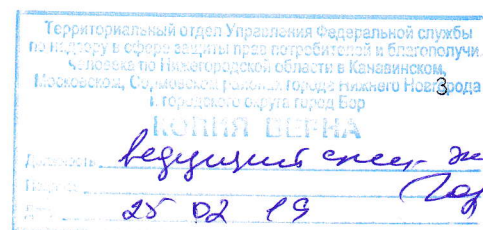 Территориальный отдел Управления Федеральной службы
по надзору в сфере защиты прав потребителей и благополучи
человека по Нижегородской области в Канавинском,
Московском, Сормовском районах города Нижнего Новгорода
3
и городского округа город Бор
КОПИЯ ВЕРНА
Должность ведущий спец-
Подпись
Дата 25 02 19